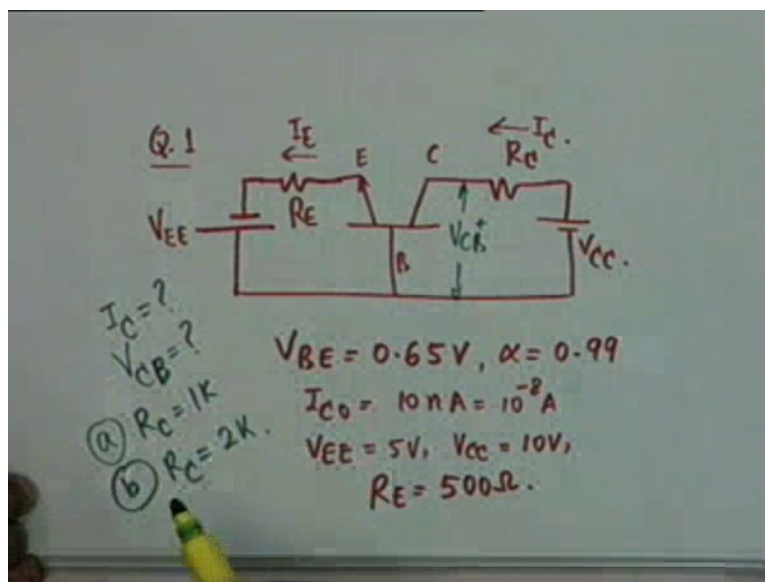 Q.1
I_E
←
E
C
← I_C.
R_C
R_E
V_EE
B
V_CB +
V_CC.
I_C = ?
V_CB = ?
(a) R_C = 1K
(b) R_C = 2K.
V_BE = 0.65V, α = 0.99
I_CO = 10nA = 10^-8 A
V_EE = 5V, V_CC = 10V,
R_E = 500Ω.